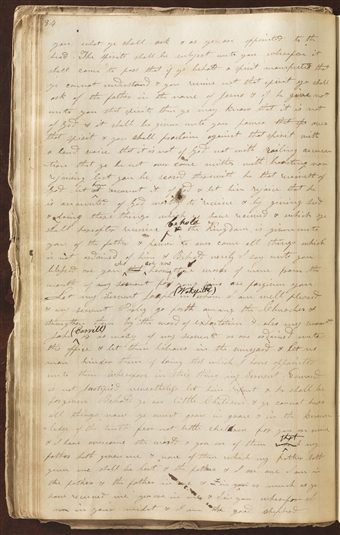 84
you what ye shall ask & as ye are appointed to the
head the spirits shall be subject unto you wherefore it
shall come to pass that if ye behold a spirit manifested that
ye cannot understand & you receive not that spirit ye shall
ask of the father in the name of Jesus & if he give not
unto you that spirit ye may know that it is not
of God & it shall be given unto you power over
that spirit & you shall proclaim against that spirit with
a loud voice that it is not of God not with railing accusa-
tion that ye be not overcome neither with boasting nor
rejoicing lest you be seized therewith he that receiveth of
God let him account it of God & let him rejoice that he
is accounted of God worthy to receive & by giving heed
& doing these things which ye have received & which ye
shall hereafter receive & the kingdom is given unto
you of the father & power to overcome all things which
is not ordained of him & Behold verily I say unto you
blessed are you who are now hearing these words of mine from the
mouth of my servant for your sins are forgiven you
Let my servant Joseph (Wakefield) in whom I am well pleased
& my servant Parley go forth among the Churches &
strengthen them by the word of exhortation & also my servant
John (Corrill) or as many of my servants as are ordained unto
this office & let them labour in the vineyard & let no
man hinder them of doing that which I have appointed
unto them wherefore in this thing my servant Edward
is not justified nevertheless let him repent & he shall be
forgiven Behold ye are little Children & ye cannot bear
all things now ye must grow in grace & in the know-
ledge of the truth fear not little children for you are mine
& I have overcome the world & you are of them that my
father hath given me & none of them which my father hath
given me shall be lost & the father & I are one I am in
the father & the father in me & in as much as ye
have received me ye are in me & I in you wherefore I
am in your midst & I am the good shepherd